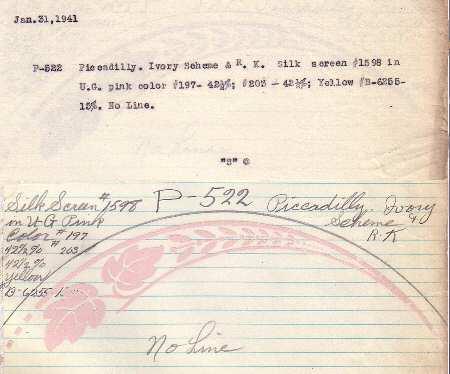 Jan.31,1941
P-522 Piccadilly. Ivory Scheme & R. K. Silk screen #1598 in
U.G. pink color #197- 42½%; #203 - 42½%; Yellow #B-6255-
15%. No Line.
"S" @
Silk Screen #1598
in U G Pink
Color #197
42½% #203
42½%
Yellow
B-6255
P-522
Piccadilly. Ivory
Scheme &
R.K
No Line